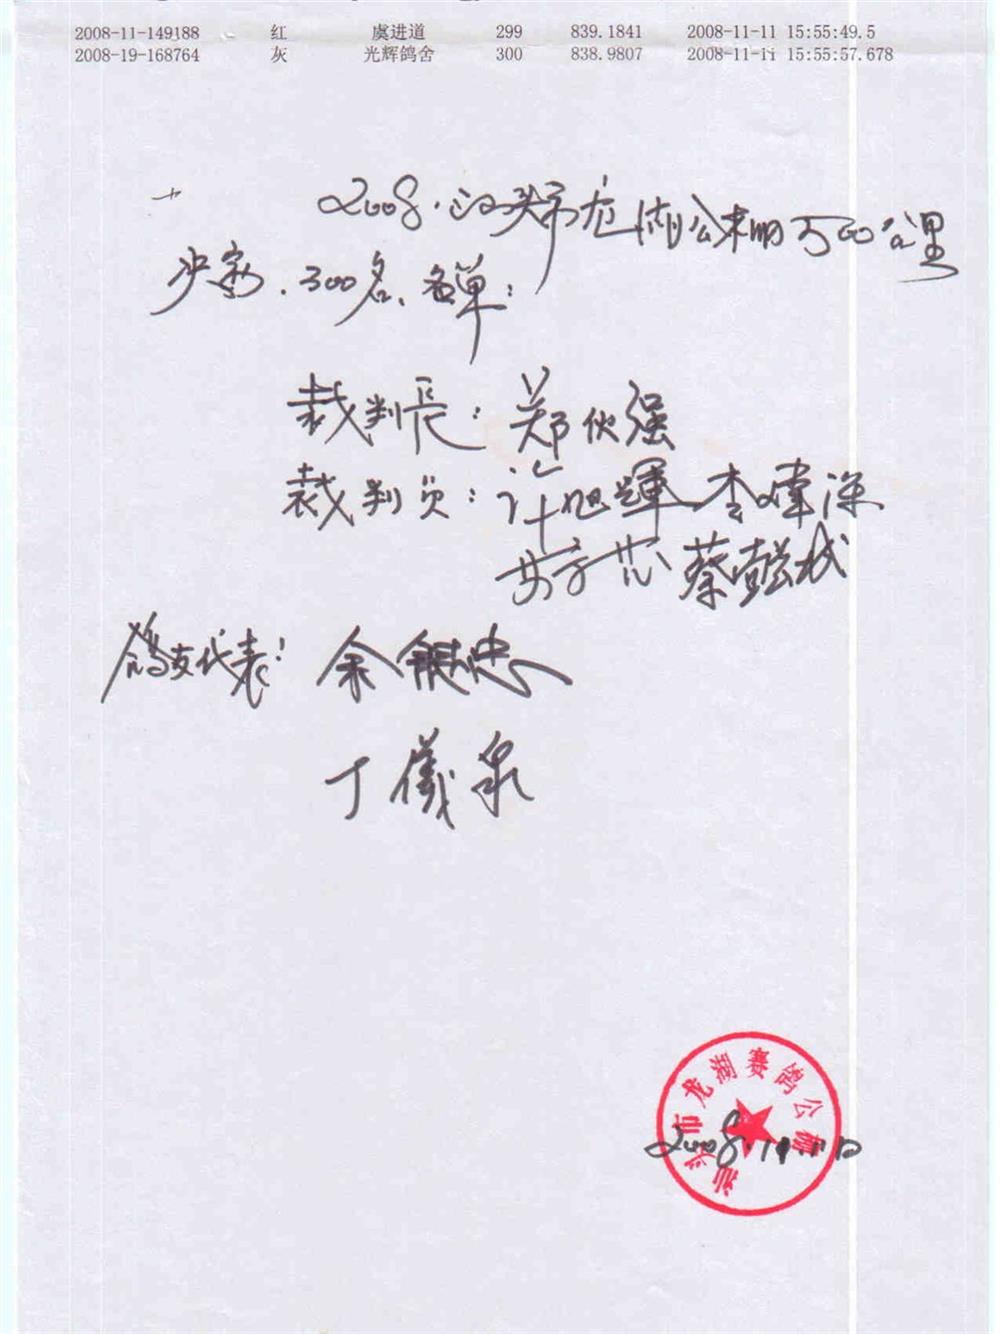 2008-11-149188 红 虞进道 299 839.1841 2008-11-11 15:55:49.5
2008-19-168764 灰 光辉鸽舍 300 838.9807 2008-11-11 15:55:57.678
2008.汕头市龙湖公棚500公里
决赛.300名、名单:
裁判長:郑伙强
裁判员:许旭輝 李
蔡
鸽友代表: 余银忠
丁儀泉
汕头市龙湖赛鸽公棚
2008.